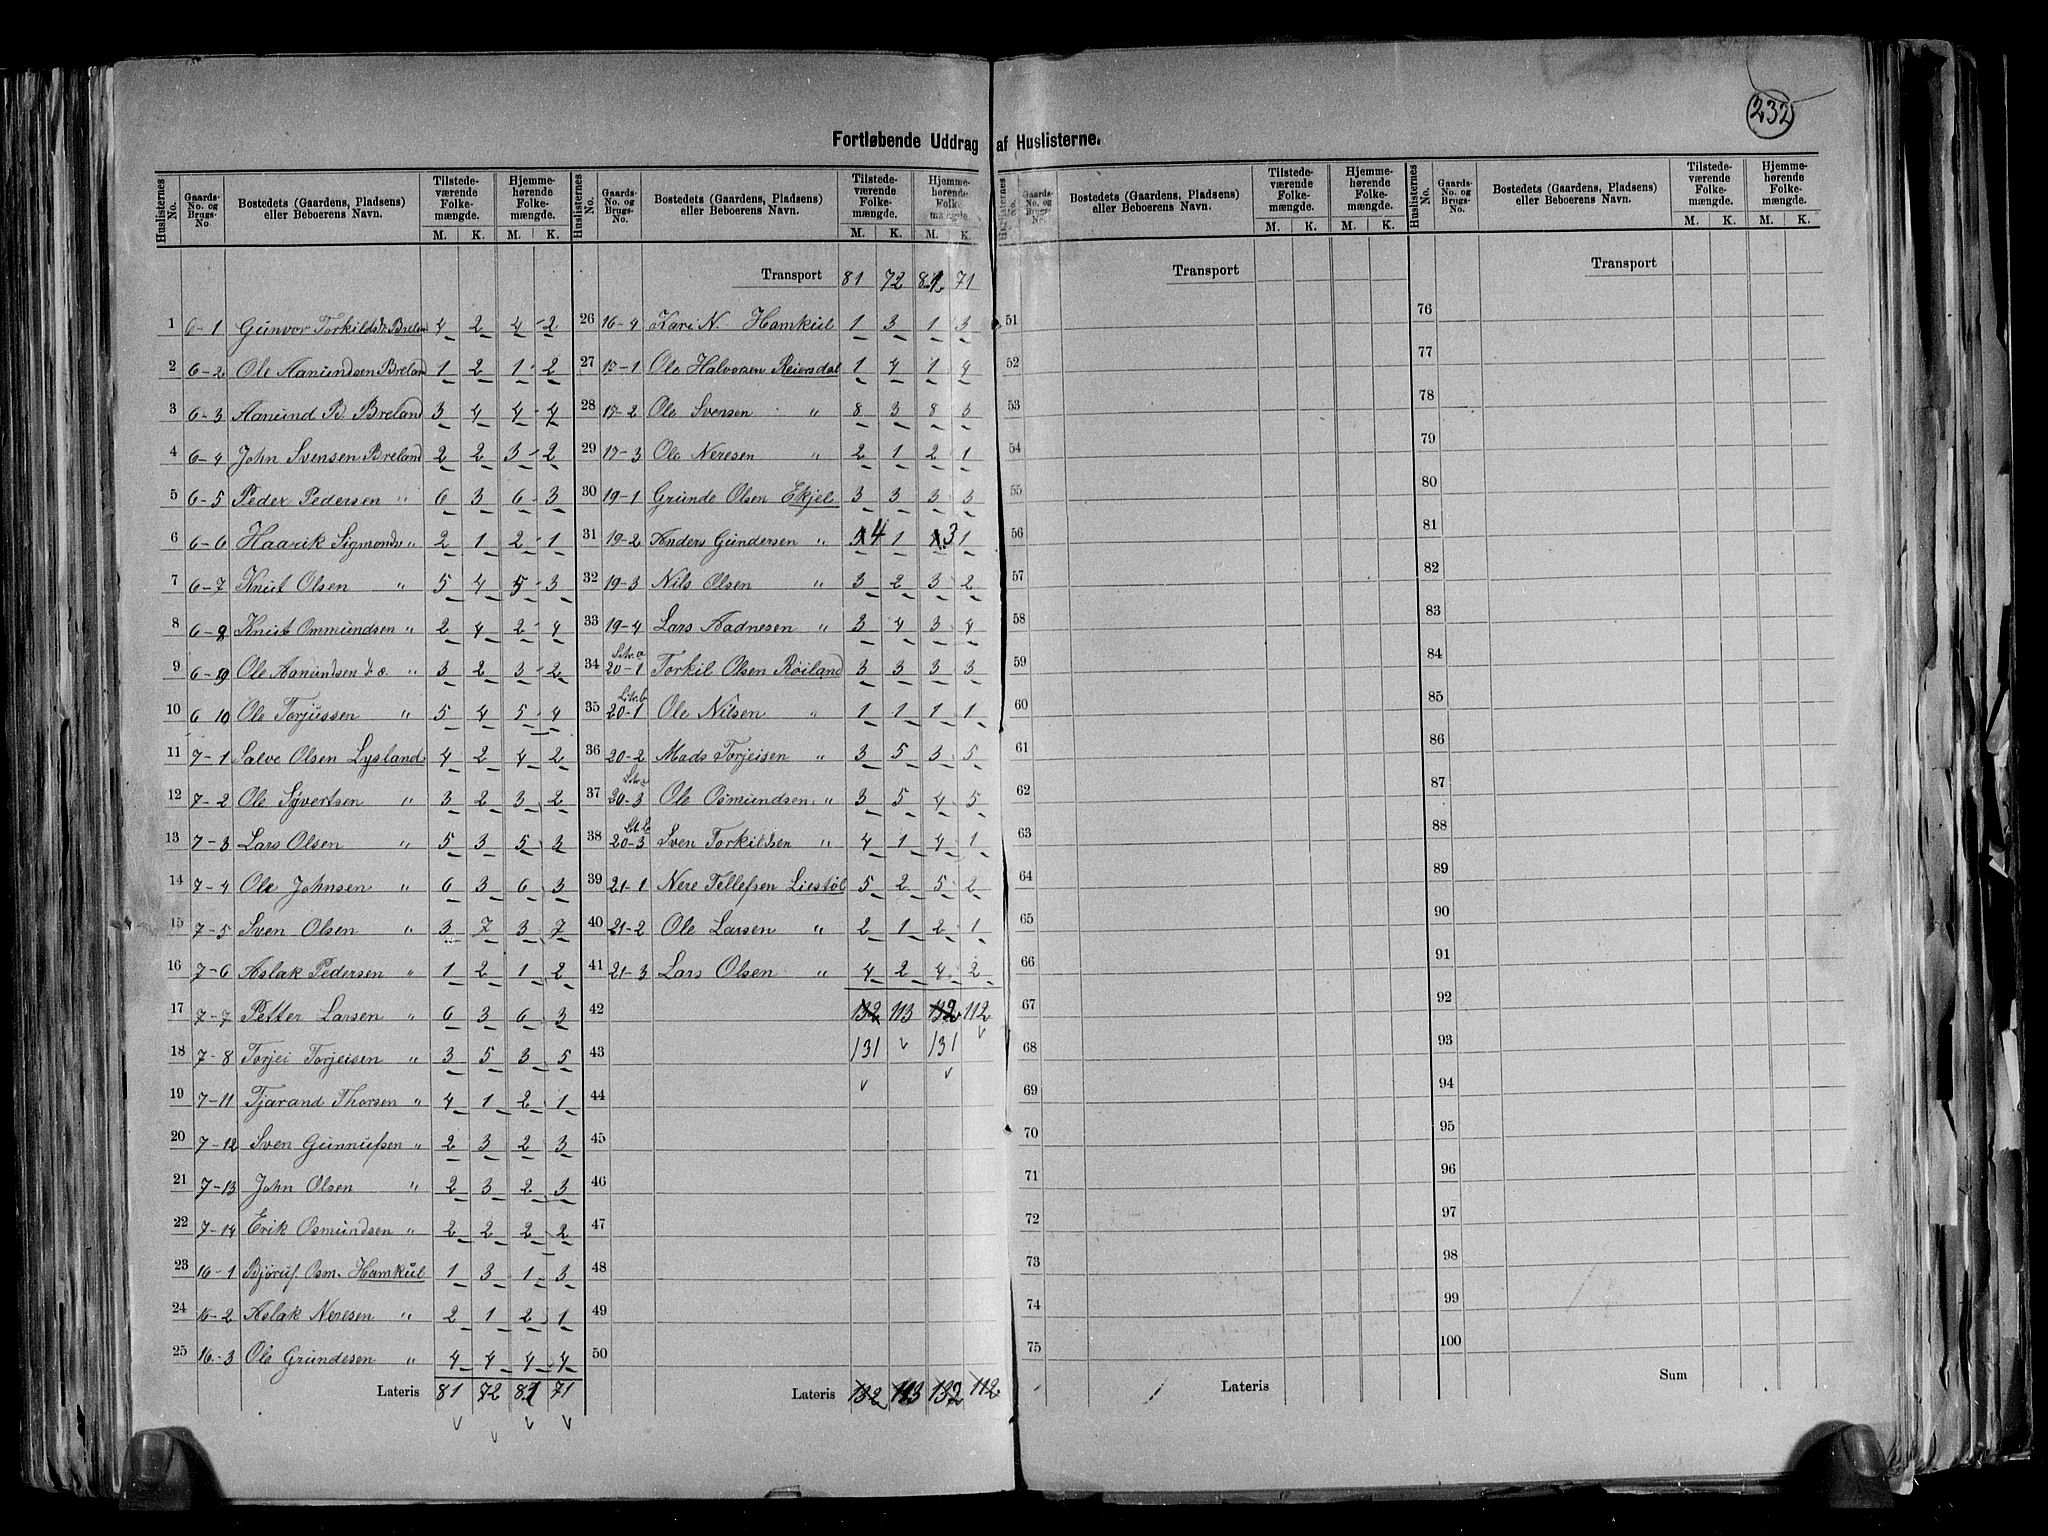 232
Fortløbende Uddrag af Huslisterne.
Huslisternes No. | Gaards-No. og Brugs-No. | Bostedets (Gaardens, Pladsens) eller Beboerens Navn. | Tilstedeværende Folkemængde. M. K. | Hjemmehørende Folkemængde. M. K.
1 6-1 Gunvor Torkildsd. Breland 4 2 4 2
2 6-2 Ole Aanundsen Breland 1 2 1 2
3 6-3 Aanund B. Breland 3 4 4 4
4 6-4 John Svensen Breland 2 2 3 2
5 6-5 Peder Pedersen " 6 3 6 3
6 6-6 Haavik Sigmonds. " 2 1 2 1
7 6-7 Knut Olsen " 5 4 5 3
8 6-8 Knut Ommundsen " 2 4 2 4
9 6-9 Ole Aanundsen d.æ. " 3 2 3 2
10 6 10 Ole Torjussen " 5 4 5 4
11 7-1 Salve Olsen Lysland 4 2 4 2
12 7-2 Ole Syvertsen " 3 2 3 2
13 7-3 Lars Olsen " 5 3 5 3
14 7-4 Ole Johnsen " 6 3 6 3
15 7-5 Sven Olsen " 3 7 3 7
16 7-6 Aslak Pedersen " 1 2 1 2
17 7-7 Petter Larsen " 6 3 6 3
18 7-8 Torjei Torjeisen " 3 5 3 5
19 7-11 Tjarand Thorsen " 4 1 2 1
20 7-12 Sven Gunnufsen " 2 3 2 3
21 7-13 John Olsen " 2 3 2 3
22 7-14 Erik Osmundsen " 2 2 2 2
23 16-1 Bjoruf. Osm. Hamkul 1 3 1 3
24 16-2 Aslak Neresen " 2 1 2 1
25 16-3 Ole Grundesen " 4 4 4 4
Lateris 81 72 81 71
Huslisternes No. | Gaards-No. og Brugs-No. | Bostedets (Gaardens, Pladsens) eller Beboerens Navn. | Tilstedeværende Folkemængde. M. K. | Hjemmehørende Folkemængde. M. K.
Transport 81 72 81 71
26 16-4 Kari N. Hamkul 1 3 1 3
27 17-1 Ole Halvorsen Reiersdal 1 4 1 4
28 17-2 Ole Svensen " 8 3 8 3
29 17-3 Ole Neresen " 2 1 2 1
30 19-1 Grunde Olsen Ekjel 3 3 3 3
31 19-2 Anders Gundersen " 4 1 3 1
32 19-3 Nils Olsen " 3 2 3 2
33 19-4 Lars Aadnesen " 3 4 3 4
34 Litr. a 20-1 Torkil Olsen Röiland 3 3 3 3
35 Litr. b 20-1 Ole Nilsen " 1 1 1 1
36 20-2 Mads Torjeisen " 3 5 3 5
37 Litr. a 20-3 Ole Osmundsen " 3 5 4 5
38 Litr. b 20-3 Sven Torkildsen " 4 1 4 1
39 21-1 Nere Tellefsen Liestöl 5 2 5 2
40 21-2 Ole Larsen " 2 1 2 1
41 21-3 Lars Olsen " 4 2 4 2
42 132 113 132 112
43 131 131
44
45
46
47
48
49
50
Lateris 132 113 132 112
Huslisternes No. | Gaards-No. og Brugs-No. | Bostedets (Gaardens, Pladsens) eller Beboerens Navn. | Tilstedeværende Folkemængde. M. K. | Hjemmehørende Folkemængde. M. K.
Transport
51
52
53
54
55
56
57
58
59
60
61
62
63
64
65
66
67
68
69
70
71
72
73
74
75
Lateris
Huslisternes No. | Gaards-No. og Brugs-No. | Bostedets (Gaardens, Pladsens) eller Beboerens Navn. | Tilstedeværende Folkemængde. M. K. | Hjemmehørende Folkemængde. M. K.
Transport
76
77
78
79
80
81
82
83
84
85
86
87
88
89
90
91
92
93
94
95
96
97
98
99
100
Sum